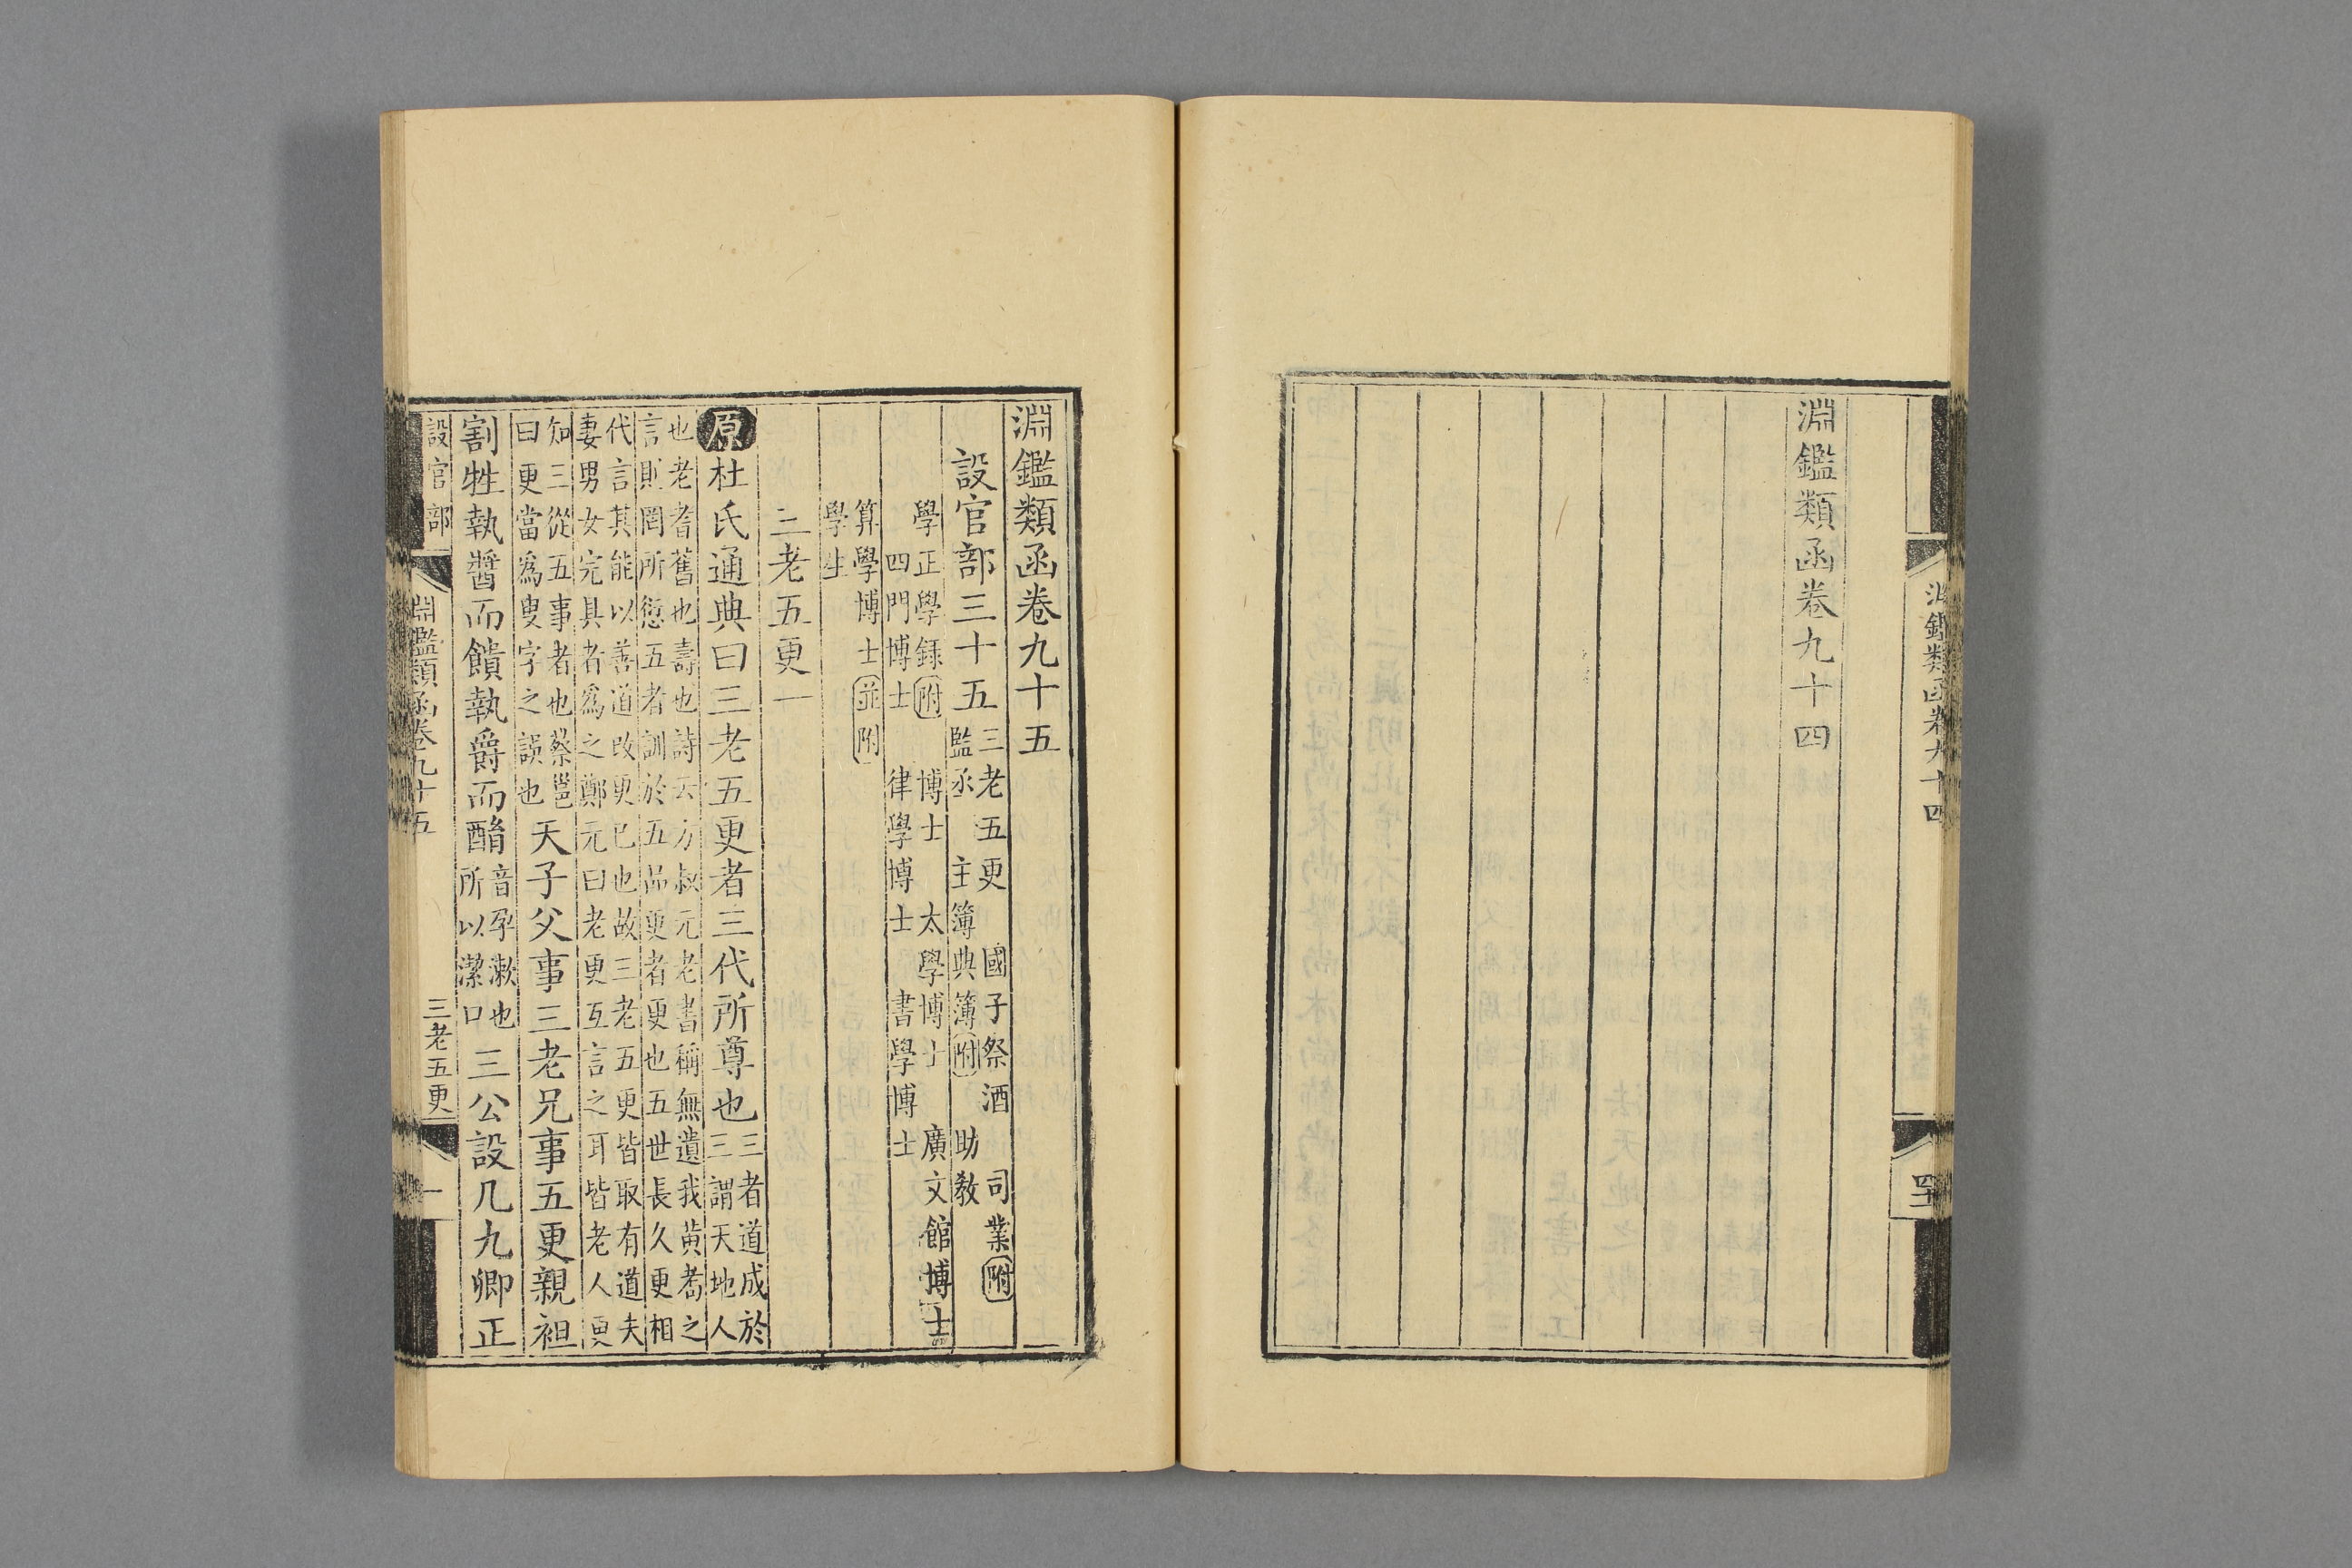 淵鑑類函卷九十四
淵鑑類函卷九十四
淵鑑類函卷九十五
設官部三十五
三老五更 國子祭酒 司業附
監丞 主簿典簿附 助教
學正學録附 博士 太學博士 廣文館博士
四門博士 律學博士 書學博士
算學博士並附
學生
三老五更一
原杜氏通典曰三老五更者三代所尊也
三者道成於
三謂天地人
也老耆舊也壽也詩云方叔元老書稱無遺我黃耇之
言則罔所愆五者訓於五品更者更也五世長久更相
代言其能以善道改更已也故三老五更皆取有道夫
妻男女完具者爲之鄭元曰老更互言之耳皆老人更
知三從五事者也蔡邕
曰更當爲叟字之誤也
天子父事三老兄事五更親袒
割牲執醬而饋執爵而酳
音孕漱也
所以潔口
三公設几九卿正
設官部
淵鑑類函卷九十五
三老五更
一